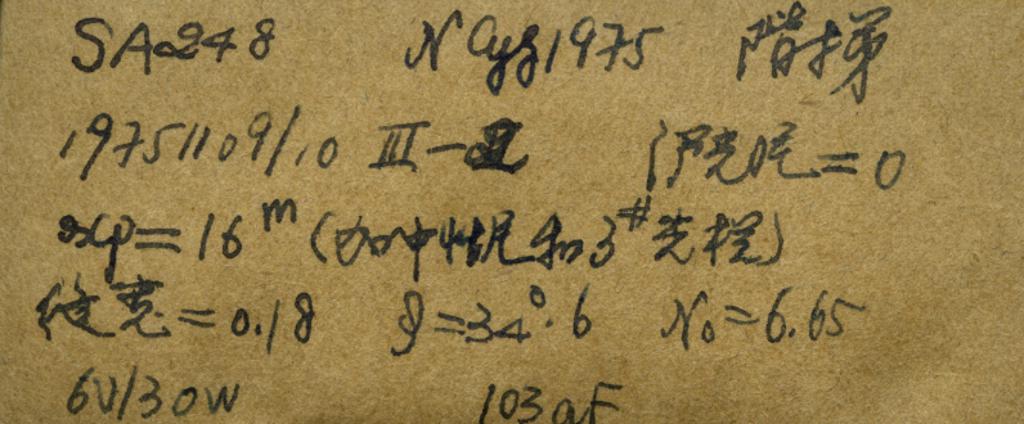 SA248 N Cyg 1975 阶梯
19751109/10 III-2 滤光片=0
exp=16ᵐ (加中性片和3#光栏)
缝宽=0.18 θ=34°.6 N₀=6.65
6V/30W 103aF